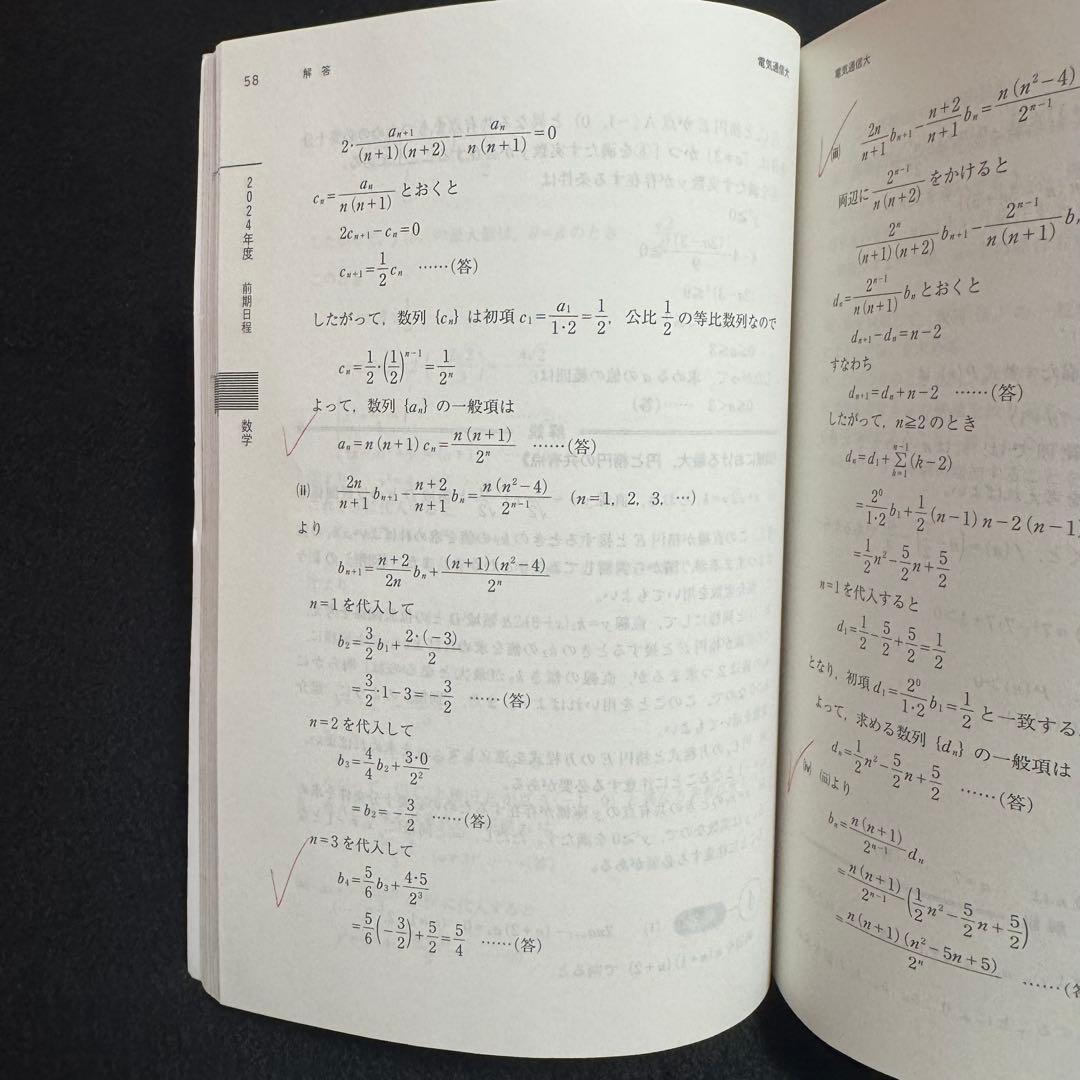 58 解答 電気通信大
2024年度 前期日程 数学
2·a_{n+1}/((n+1)(n+2)) − a_n/(n(n+1)) = 0
c_n = a_n/(n(n+1)) とおくと
2c_{n+1} − c_n = 0
c_{n+1} = 1/2 c_n ……(答)
したがって，数列 {c_n} は初項 c_1 = a_1/(1·2) = 1/2， 公比 1/2 の等比数列なので
c_n = 1/2·(1/2)^{n−1} = 1/2^n
よって，数列 {a_n} の一般項は
a_n = n(n+1)c_n = n(n+1)/2^n ……(答)
(ii) 2n/(n+1) b_{n+1} − (n+2)/(n+1) b_n = n(n²−4)/2^{n−1} (n=1, 2, 3, …)
より
b_{n+1} = (n+2)/2n b_n + (n+1)(n²−4)/2^n
n=1 を代入して
b_2 = 3/2 b_1 + 2·(−3)/2
= 3/2·1 − 3 = −3/2 ……(答)
n=2 を代入して
b_3 = 4/4 b_2 + 3·0/2²
= b_2 = −3/2 ……(答)
n=3 を代入して
b_4 = 5/6 b_3 + 4·5/2³
= 5/6(−3/2) + 5/2 = 5/4 ……(答)
電気通信大
(iii) 2n/(n+1) b_{n+1} − (n+2)/(n+1) b_n = n(n²−4)/2^{n−1}
両辺に 2^{n−1}/(n(n+2)) をかけると
2^n/((n+1)(n+2)) b_{n+1} − 2^{n−1}/(n(n+1)) b_n
d_n = 2^{n−1}/(n(n+1)) b_n とおくと
d_{n+1} − d_n = n−2
すなわち
d_{n+1} = d_n + n − 2 ……(答)
したがって，n≧2 のとき
d_n = d_1 + Σ_{k=1}^{n−1} (k−2)
= 2^0/(1·2) b_1 + 1/2 (n−1)n − 2(n−1)
= 1/2 n² − 5/2 n + 5/2
n=1 を代入すると
d_1 = 1/2 − 5/2 + 5/2 = 1/2
となり，初項 d_1 = 2^0/(1·2) b_1 = 1/2 と一致する
よって，求める数列 {d_n} の一般項は
d_n = 1/2 n² − 5/2 n + 5/2 ……(答)
(iv) (iii)より
b_n = n(n+1)/2^{n−1} d_n
= n(n+1)/2^{n−1} (1/2 n² − 5/2 n + 5/2)
= n(n+1)(n²−5n+5)/2^n ……(答